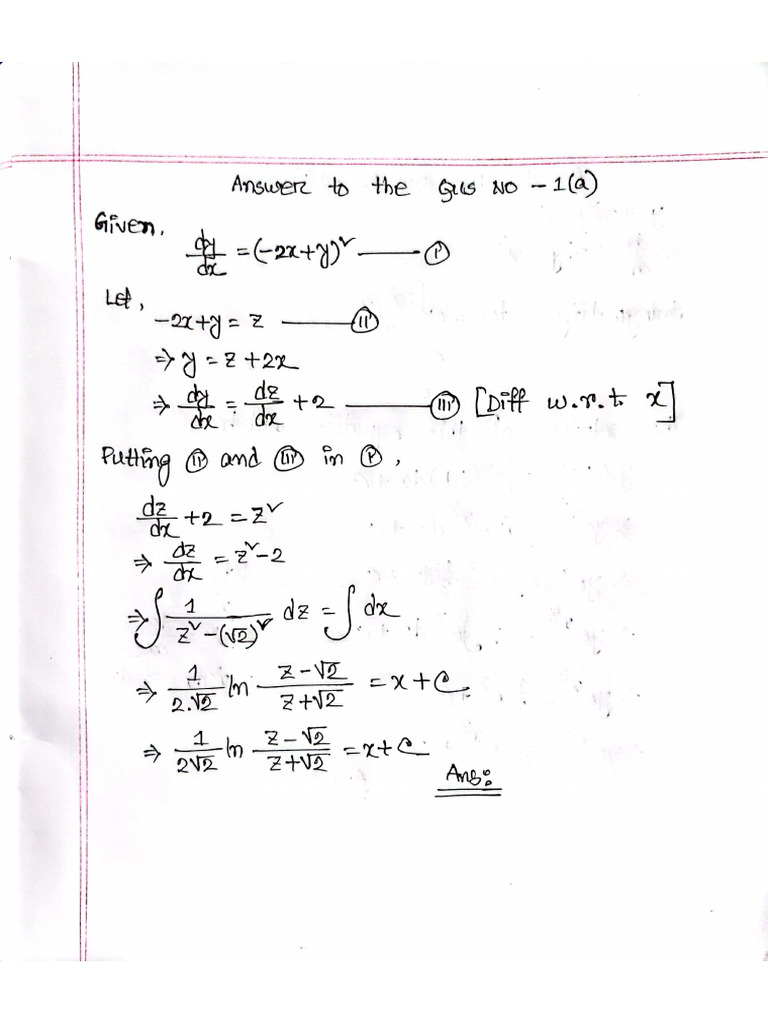 Answer to the Qus NO - 1(a)
Given,
dy/dx = (-2x+y)² —— (i)
Let,
-2x+y = z —— (ii)
⇒ y = z + 2x
⇒ dy/dx = dz/dx + 2 —— (iii) [Diff w.r.t x]
Putting (ii) and (iii) in (i),
dz/dx + 2 = z²
⇒ dz/dx = z² - 2
⇒ ∫ 1/(z² - (√2)²) dz = ∫ dx
⇒ 1/(2.√2) ln (z-√2)/(z+√2) = x + c
⇒ 1/(2√2) ln (z-√2)/(z+√2) = x + c
Ans: